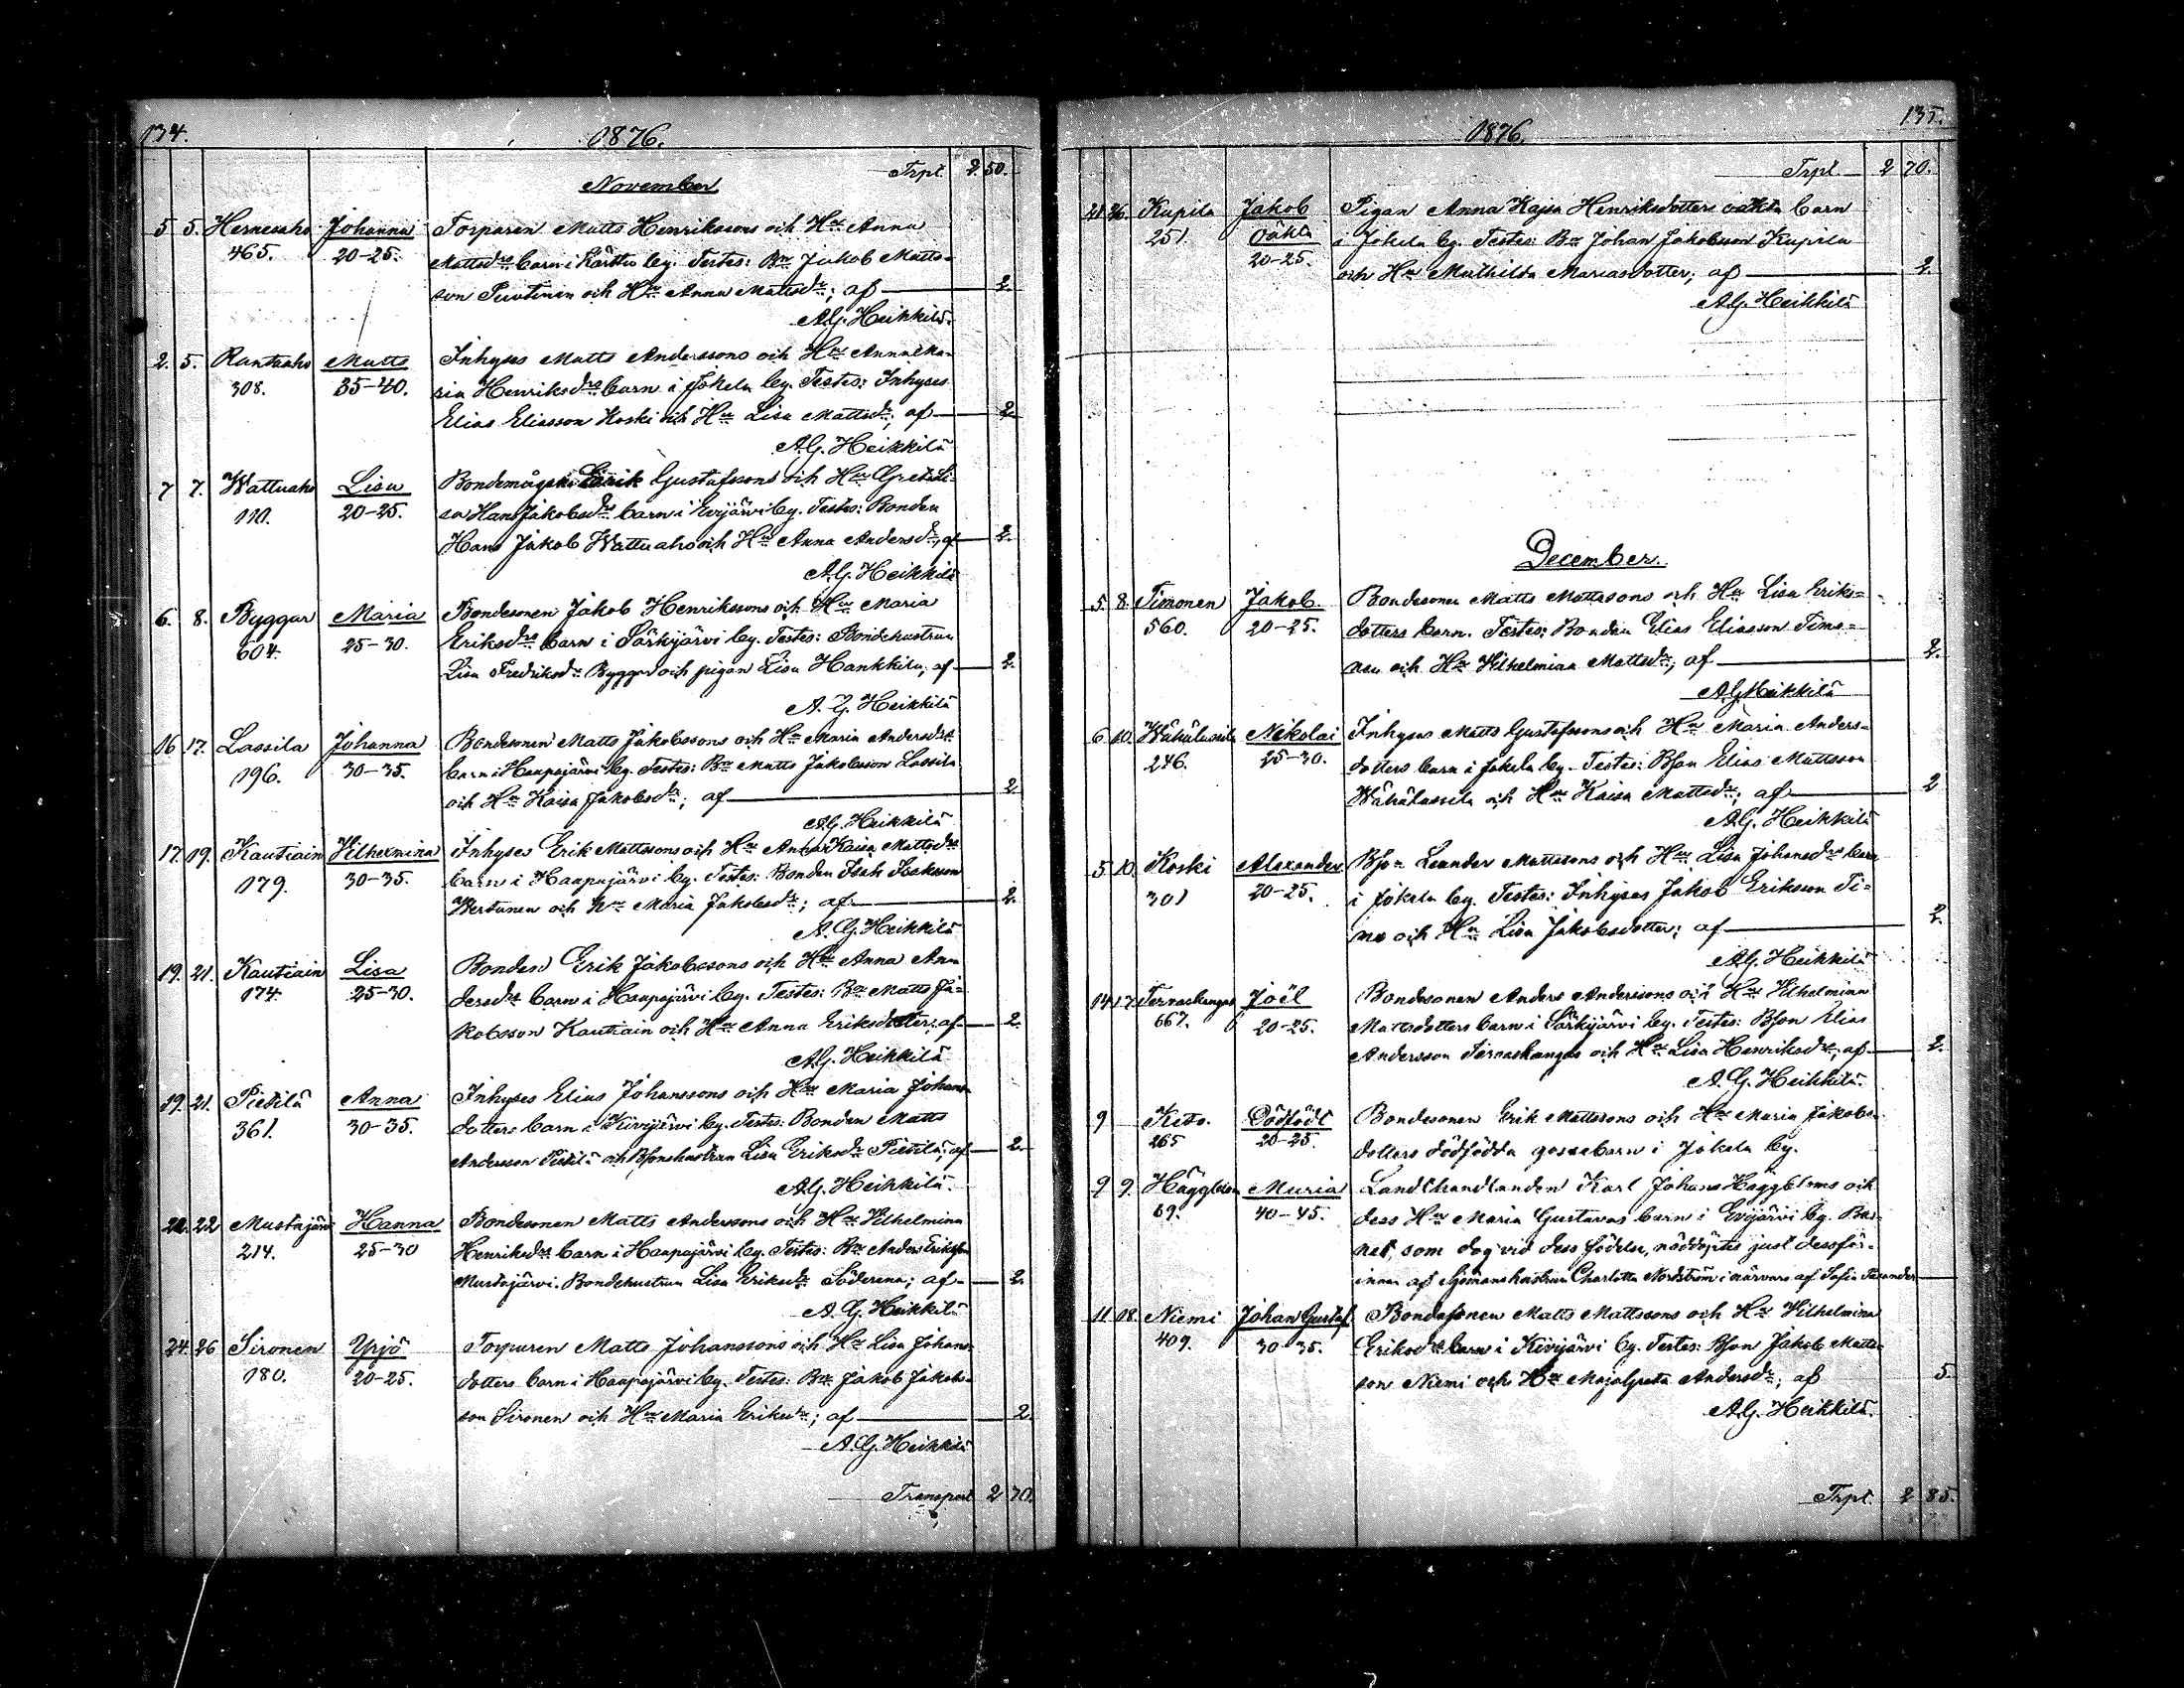 134.
1876.
November
Trpt. 2 50.
5 5. Hernesaho Johanna Torparen Matts Henrikssons och Hu Anna
465. 20-25. Mattsdrs barn i Kärttu by. Testes: Bn Jakob Matts-
son och Hu Anna Mattsdr; af 2.
A.G. Heikkilä.
2. 5. Rantaaho Matts Inhyses Matts Anderssons och Hu Anna Ma-
308. 35-40. ria Henriksdrs barn i Jokela by. Testes: Inhyses
Elias Eliasson Koski och Hu Lisa Mattsdr; af 2.
A.G. Heikkilä
7 7. Wattuaho Lisa Bondemågen Erik Gustafssons och Hu Greta Li-
110. 20-25. sa Hans Jakobsdrs barn i Evijärvi by. Testes: Bonden
Hans Jakob Wattuaho och Hu Anna Andersdr; af 2.
A.G. Heikkilä
6. 8. Byggar Maria Bondesonen Jakob Henrikssons och Hu Maria
604. 25-30. Eriksdrs barn i Särkijärvi by. Testes: Bondehustrun
Lisa Fredriksdr Byggar och pigan Lisa Hankkila; af 2.
A.G. Heikkilä
16 17. Lassila Johanna Bondesonen Matts Jakobssons och Hu Maria Andersdrs
196. 30-35. barn i Haapajärvi by. Testes: Bn Matts Jakobsson Lassila
och Hu Kaisa Jakobsdr; af 2.
A.G. Heikkilä
17. 19. Kautiain Vilhelmina Inhyses Erik Mattssons och Hu Anna Kaisa Mattsdrs
179. 30-35. barn i Haapajärvi by. Testes: Bonden Isak Isaksson
Wertanen och Hu Maria Jakobsdr; af 2.
A.G. Heikkilä
19. 21. Kautiain Lisa Bonden Erik Jakobssons och Hu Anna An-
174. 25-30. dersdrs barn i Haapajärvi by. Testes: Bn Matts Ja-
kobsson Kautiain och Hu Anna Eriksdotter; af 2.
A.G. Heikkilä
19. 21. Pietilä Anna Inhyses Elias Johanssons och Hu Maria Johans-
361. 30-35. dotters barn i Kivijärvi by. Testes: Bonden Matts
Andersson Pietilä och Bsonshustrun Lisa Eriksdr Pietilä; af 2.
A.G. Heikkilä.
22 Mustajärvi Hanna Bondesonen Matts Anderssons och Hu Vilhelmina
214. 25-30 Henriksdrs barn i Haapajärvi by. Testes: Bn Anders Eriksson
Mustajärvi. Bondehustrun Lisa Eriksdr Söderena; af 2.
A.G. Heikkilä
24. 26 Sironen Yrjö Torparen Matts Johanssons och Hu Lisa Johans-
180. 20-25. dotters barn i Haapajärvi by. Testes: Bn Jakob Jakobs-
son Sironen och Hu Maria Eriksdr; af 2.
A.G. Heikkilä
Transport 2 70.
135.
1876.
Trpt. 2 70.
21. 26. Kupila Jakob Pigan Anna Kajsa Henriksdotters oäkta barn
251 Oäkta i Jokela by. Testes: Bn Johan Jakobsson Kupila
20-25. och Hu Mathilda Mariasdotter; af 2.
A.G. Heikkilä
December.
5. 8. Timonen Jakob. Bondesonen Matts Mattssons och Hu Lisa Eriks-
560. 20-25. dotters barn. Testes: Bonden Elias Eliasson Timo-
nen och Hu Vilhelmina Mattsdr; af 2.
A.G. Heikkilä
6 10. Wähälassila Nikolai Inhyses Matts Gustafssons och Hu Maria Anders-
246. 25-30. dotters barn i Jokela by. Testes: Bson Elias Mattsson
Wähälassila och Hu Kaisa Mattsdr; af 2
A.G. Heikkilä
5 10. Koski Alexander Bson Leander Mattssons och Hu Lisa Johansdrs barn
301 20-25. i Jokela by. Testes: Inhyses Jakob Eriksson Ti-
mo och Hu Lisa Jakobsdotter; af 2.
A.G. Heikkilä
14 17. Ternaskangas Joël Bondesonen Anders Anderssons och Hu Vilhelmina
667. 20-25. Mattsdotters barn i Särkijärvi by. Testes: Bson Elias
Andersson Ternaskangas och Hu Lisa Henriksdr; af 2.
A.G. Heikkilä.
9 Keto. Dödfödt Bondesonen Erik Mattssons och Hu Maria Jakobs-
265 20-25. dotters dödfödda gossebarn i Jokela by.
9 9. Häggblom Maria Landthandlanden Karl Johans Häggbloms och
69. 40-45. dess Hu Maria Gustavas barn i Evijärvi by. Bar-
net, som dog vid dess födelse, nöddöptes just dessför-
innan af Sjömanshustrun Charlotta Nordström i närvaro af Sofia
11 18. Niemi Johan Gustaf. Bondesonen Matts Mattssons och Hu Vilhelmina
409. 30-35. Eriksdrs barn i Kivijärvi by. Testes: Bson Jakob Matts-
son Niemi och Hu Maja Greta Andersdr; af 5.
A.G. Heikkilä.
Trpt. 2 85.